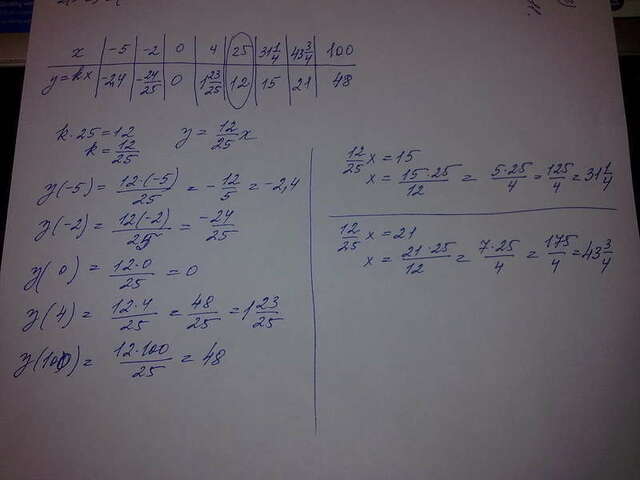 x | -5 | -2 | 0 | 4 | 25 | 31 1/4 | 43 3/4 | 100
y=kx | -2,4 | -24/25 | 0 | 1 23/25 | 12 | 15 | 21 | 48
k·25=12
k=12/25
y=12/25 x
y(-5)= 12·(-5)/25 = -12/5 = -2,4
y(-2)= 12(-2)/25 = -24/25
y(0)= 12·0/25 = 0
y(4)= 12·4/25 = 48/25 = 1 23/25
y(100)= 12·100/25 = 48
12/25 x=15
x= 15·25/12 = 5·25/4 = 125/4 = 31 1/4
12/25 x=21
x= 21·25/12 = 7·25/4 = 175/4 = 43 3/4